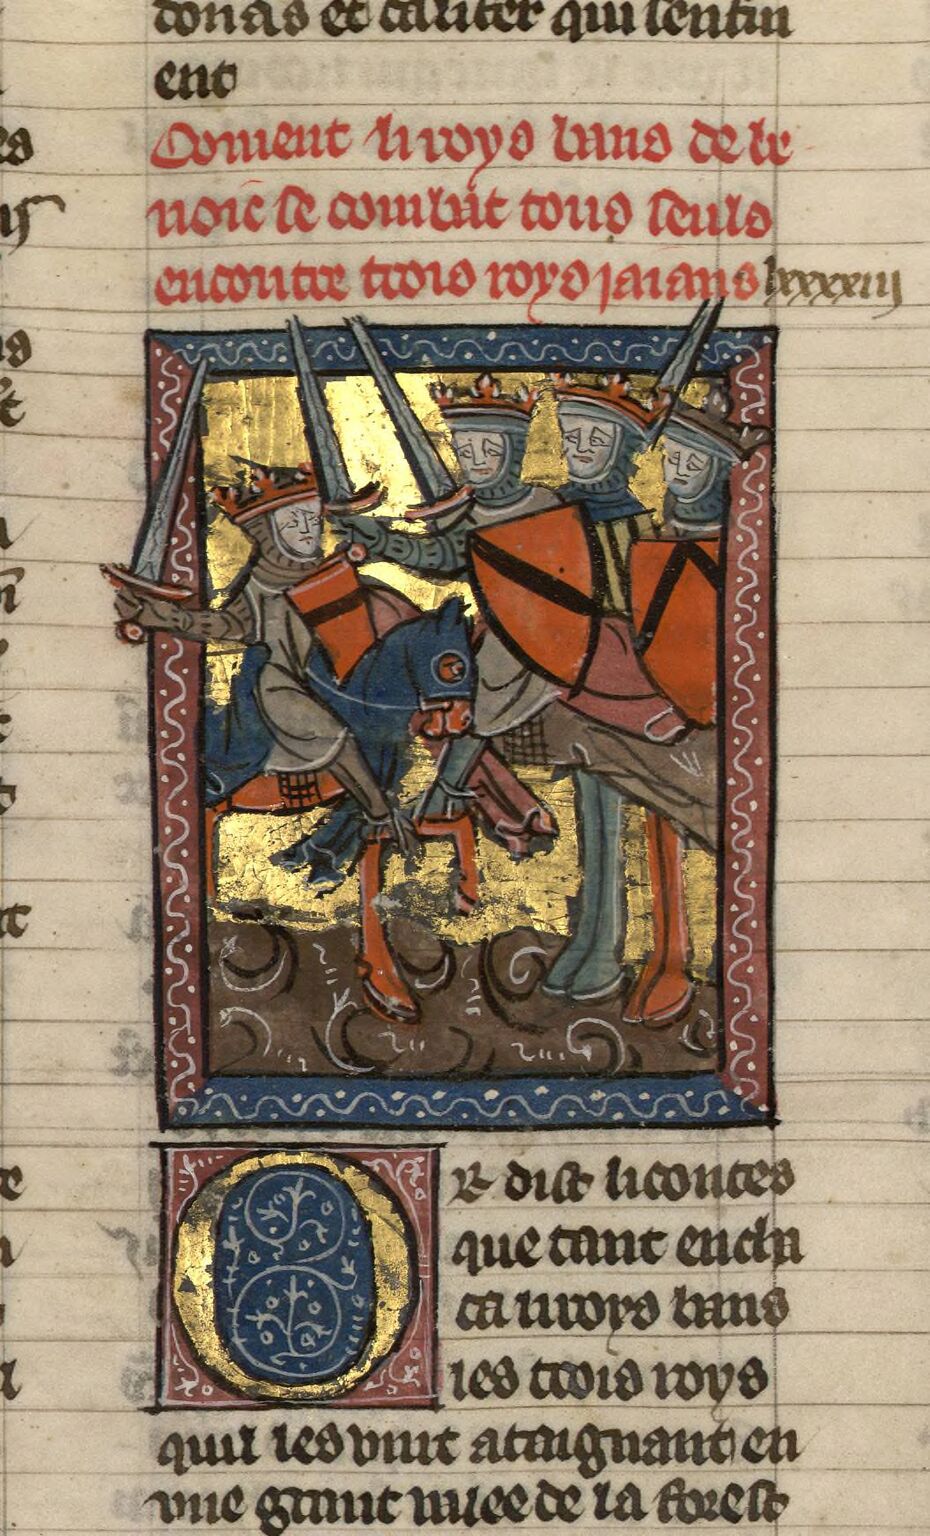 donas et cariter qui sentin
ent
Coment li roys bans de be
noic se combat tous seuls
encontre trois roys iaians lxxxxiii
Or dist li contes
que tant encha
ca li roys bans
les trois roys
quil les vint ataignant en
vne grant valee de la forest